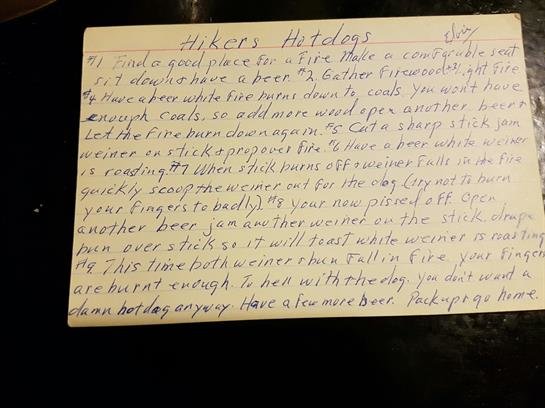 Hikers Hotdogs
Elvin
#1 Find a good place for a fire Make a comforable seat
sit down + have a beer. #2. Gather firewood #3 Light fire
#4 Have a beer white fire burns down to coals you won't have
enough coals, so add more wood open another beer +
Let the fire burn down again. #5 Cut a sharp stick jam
weiner on stick + prop over fire. #6 Have a beer white weiner
is roasting. #7 When stick burns off + weiner falls in the fire
quickly scoop the weiner out for the dog (try not to burn
your fingers to badly). #8 your now pissed off. open
another beer jam another weiner on the stick. drape
bun over stick so it will toast white weiner is roasting
#9. This time both weiner + bun fall in fire. your fingers
are burnt enough. To hell with the dog. you don't want a
damn hotdog anyway. Have a few more beer. Pack up + go home.